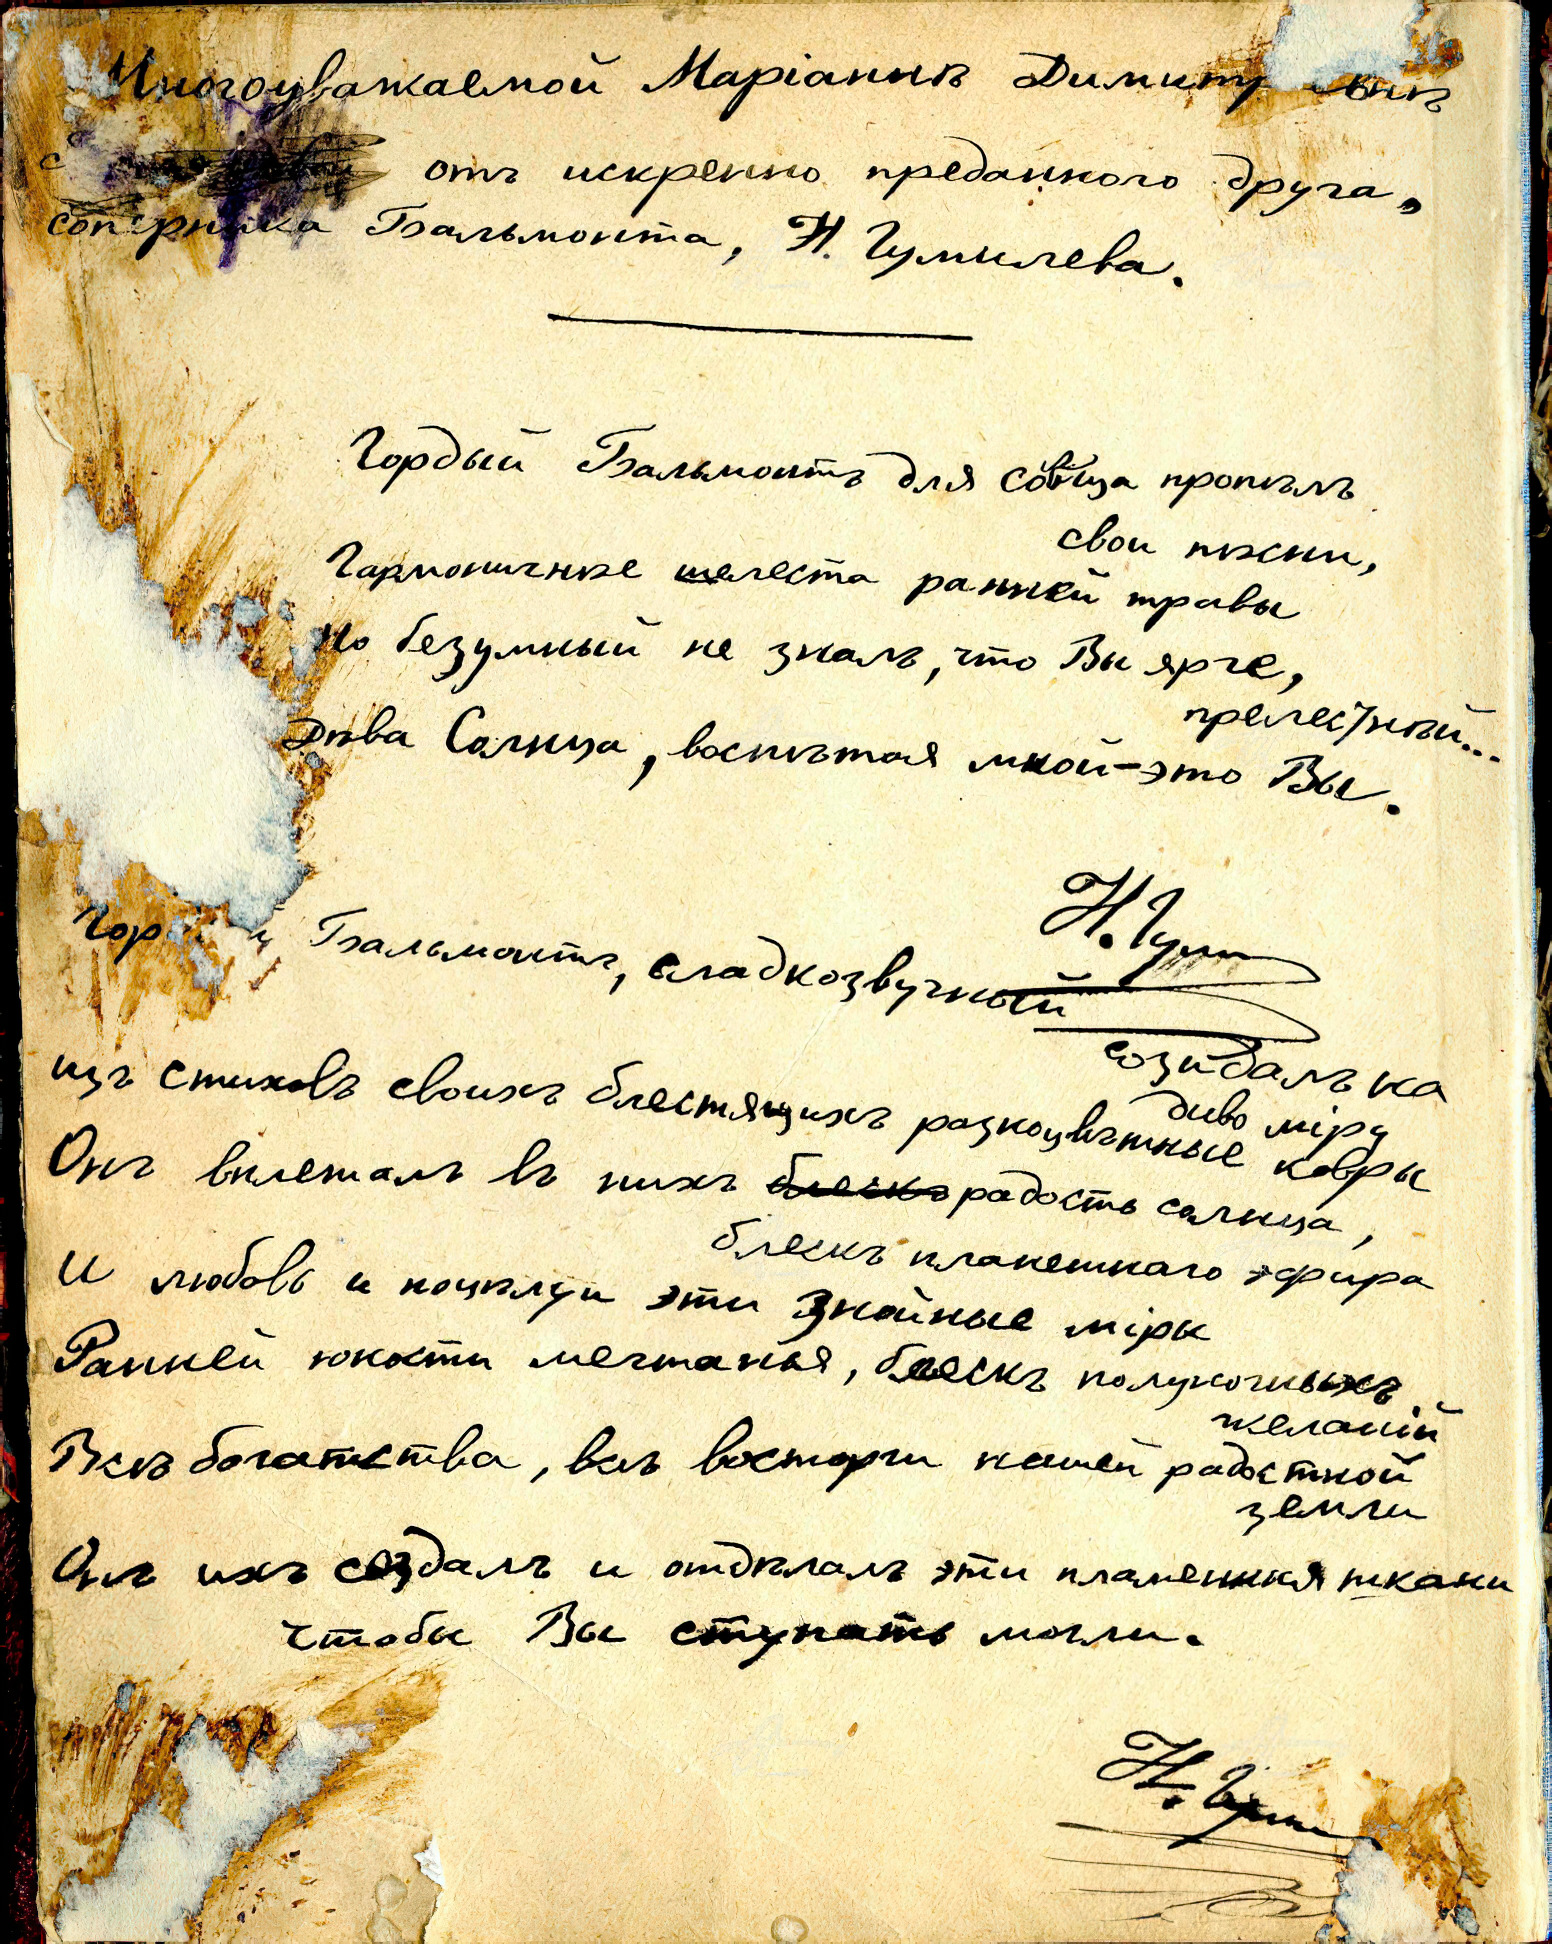 Многоуважаемой Маріаннѣ Димитр евнѣ
отъ искренно преданного друга,
соперника Бальмонта, Н. Гумилева.
Гордый Бальмонтъ для солнца пропѣлъ
свои пѣсни,
Гармоничнѣе шелеста ранней травы
Но безумный не зналъ, что Вы ярче,
прелестнѣй...
Дѣва Солнца, воспѣтая мной – это Вы.
Н. Гум
Гор й Бальмонтъ, сладкозвучный
созидалъ на
диво міру
изъ стиховъ своихъ блестящихъ разноцвѣтные ковры
Онъ вплеталъ въ нихъ блескъ радость солнца,
блескъ планетнаго эфира
И любовь и поцѣлуи эти знойные міры
Ранней юности мечтанья, блескъ полуночныхъ
желаній
Всѣ богатства, всѣ восторги нашей радостной
земли
Онъ ихъ создалъ и отдѣлалъ эти пламенныя ткани
Чтобы Вы ступать могли.
Н. Гум